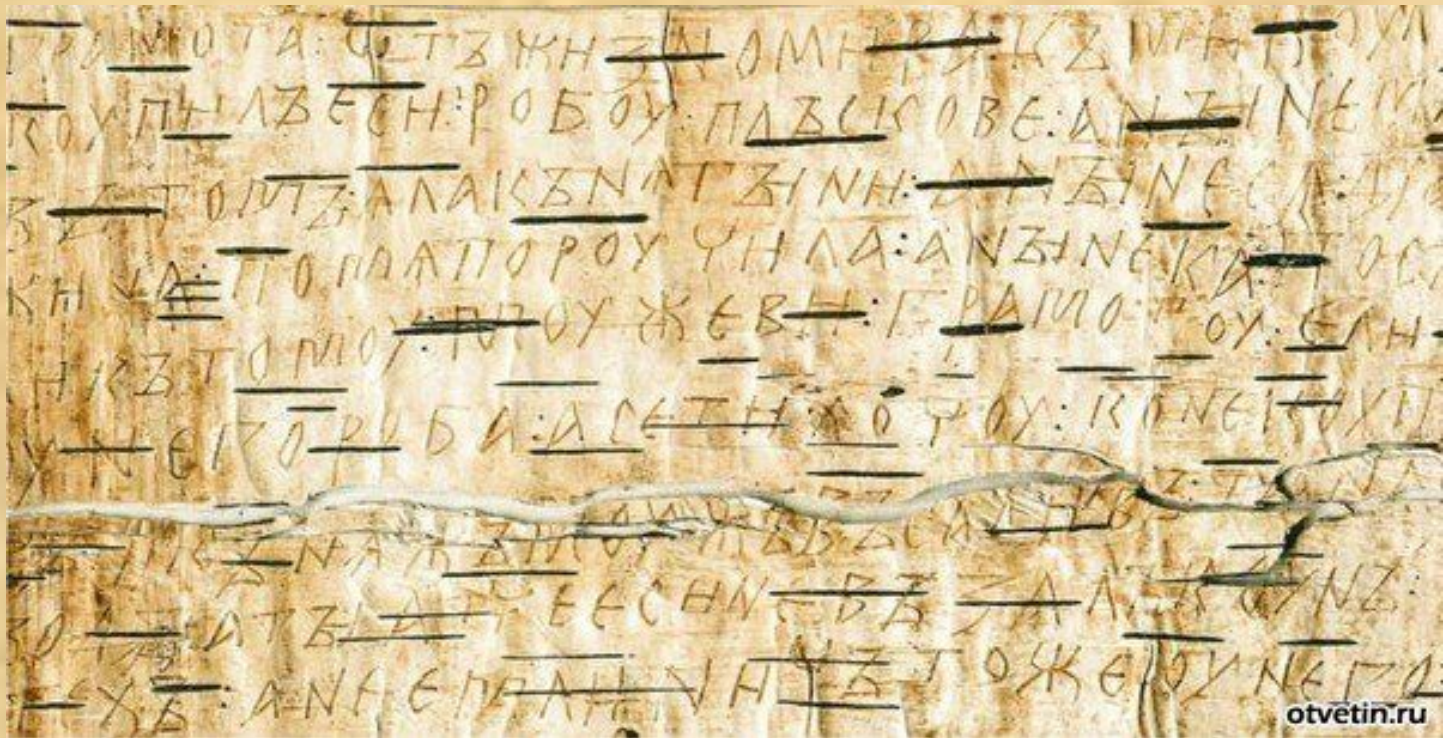 грамота : ѡтъ жизномира : къ микоул
коупилъ еси : робоу : плъскове : а нъине м
въ томъ : ѧла кънѧгъини : а нъине сѧ : д
жина : по мѧ пороучила : а нъине ка : пос
ли къ томоу : моужеви : грамотоу : ели
оу него роба : а се ти хочоу : коне коупи
и кънѧжъ моужъ въсадивъ : та на
водъ : а тъ атче еси не възалъ коунъ :
техъ : а не емли : ничъто же оу него
otvetin.ru